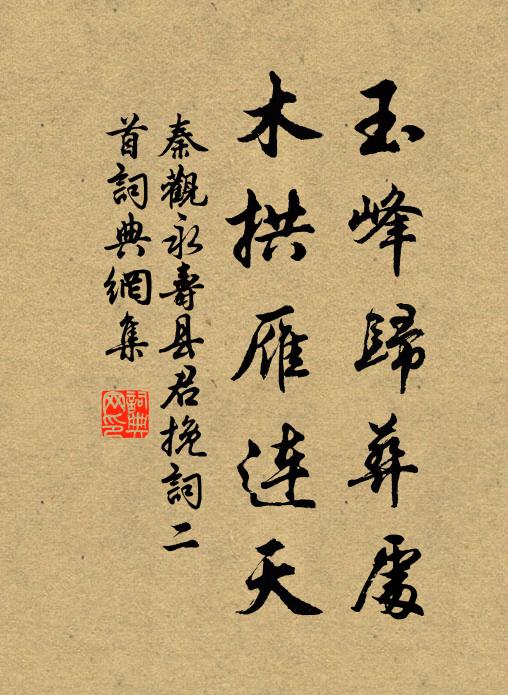 玉峰歸葬處
木拱雁連天
秦觀永壽县君挽詞二
首詞典網集
詞典
网印